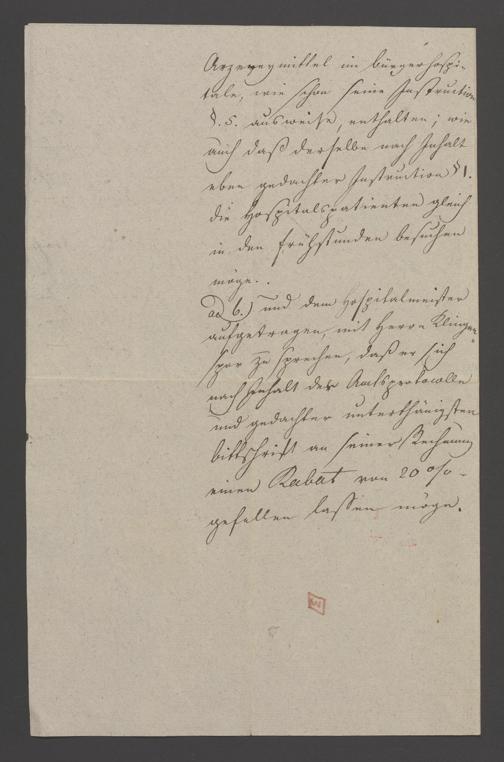 Arzeneymittel im bürgerhospi-
tale, wie schon seine Instruction
§. 5. ausweise, enthalten; wie
auch daß derselbe nach Inhalt
eben gedachter Instruction § 1.
die Hospitalspatienten gleich
in den Frühstunden besuchen
möge.
ad 6.) und dem Hospitalmeister
aufgetragen, mit Herrn Klingen-
spor zu sprechen, daß er sich
nach Inhalt des Amtsprotocolle
und gedachter unterthänigsten
bittschrift an seiner Rechnung
einen Rabat von 20 %
gefallen lassen möge.